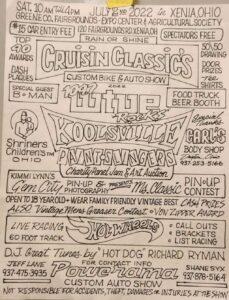 SAT. 10 AM TILL 4 PM JULY 2022 IN XENIA, OHIO
GREENE CO. FAIRGROUNDS • EXPO CENTER & AGRICULTURAL SOCIETY
$15 CAR ENTRY FEE
120 FAIRGROUNDS RD. XENIA OH
SPECTATORS FREE
RAIN OR SHINE
TOP 40 AWARDS
DASH PLAQUES
CRUISIN CLASSIC'S
CUSTOM BIKE & AUTO SHOW
50/50 DRAWING
DOOR PRIZES
TEE SHIRTS
SPECIAL GUEST
B-MAN
2022
WTUE
ROCKS
FOOD TRUCK
BEER BOOTH
Shriners
Children's™
OHIO
KOOLSVILLE
PAINTSLINGERS
Charity Panel Jam & Art Auction
Special Thanks
CARL'S
BODY SHOP
937-253-5166
KIMMI LYNN'S
Gem City
PIN-UP &
PHOTOGRAPHY
PRESENTS
Ms. Classic
PINUP
CONTEST
OPEN TO 18 YEAR OLD+ WEAR FAMILY FRIENDLY VINTAGE BEST CASH PRIZES
4:30 Vintage Mens Greaser Contest • VON ZIPPER AWARD
LIVE RACING
60 FOOT TRACK
HOT WHEELS
• CALL OUTS
• BRACKETS
• LIST RACING
D.J. Great Tunes by "HOT DOG" RICHARD RYMAN
JEFF LANE
937-475-3935
FOR CONTACT INFO
Powerama
CUSTOM AUTO SHOW
SHANE SYX
937-878-5164
NOT RESPONSIBLE FOR ACCIDENTS, THEFT, DAMAGES OR INJURIES AT THE SHOW